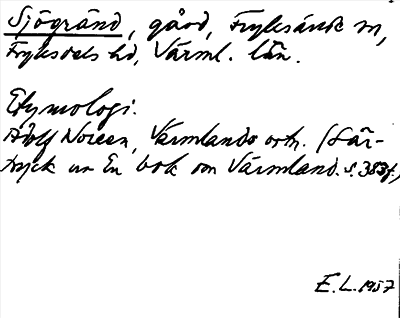 Sjögränd, gård, Fryksände sn,
Fryksdals hd, Värml. län.
Etymologi.
Adolf Noreen, Värmlands ortn. (Sär-
tryck ur En bok om Värmland. s. 383f.)
E.L. 1957